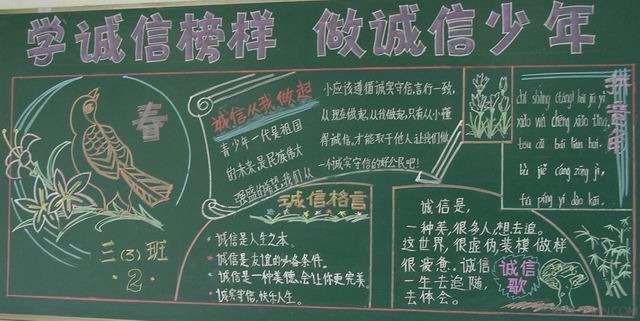 学诚信榜样 做诚信少年
春
三(3)班
2
诚信从我做起
青少年一代是祖国
的未来,是民族伟大
强盛的希望,我们从
小应该遵循诚实守信,言行一致,
从现在做起,从我做起,只有从小懂
得诚信,才能取于他人,让我们做
一个诚实守信的好公民吧!
诚信格言
诚信是人生之本。
诚信是友谊的必备条件。
诚信是一种美德,会让你更完美。
诚实守信,快乐人生。
诚信是,
一种美,很多人,想去追。
这世界,很虚伪,装模做样
很疲惫。诚信
一生去追随,
去体会。
诚信
歌
拼音角
chí shàng
xiǎo wá chēng xiǎo tǐng,
tōu cǎi bái lián huí.
bù jiě cáng zōng jì,
fú píng yí dào kāi.